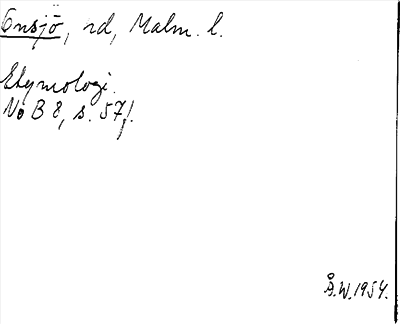 Onsjö, rd, Malm. l.
Etymologi.
NoB 8, s. 57f.
Å.W. 1954.